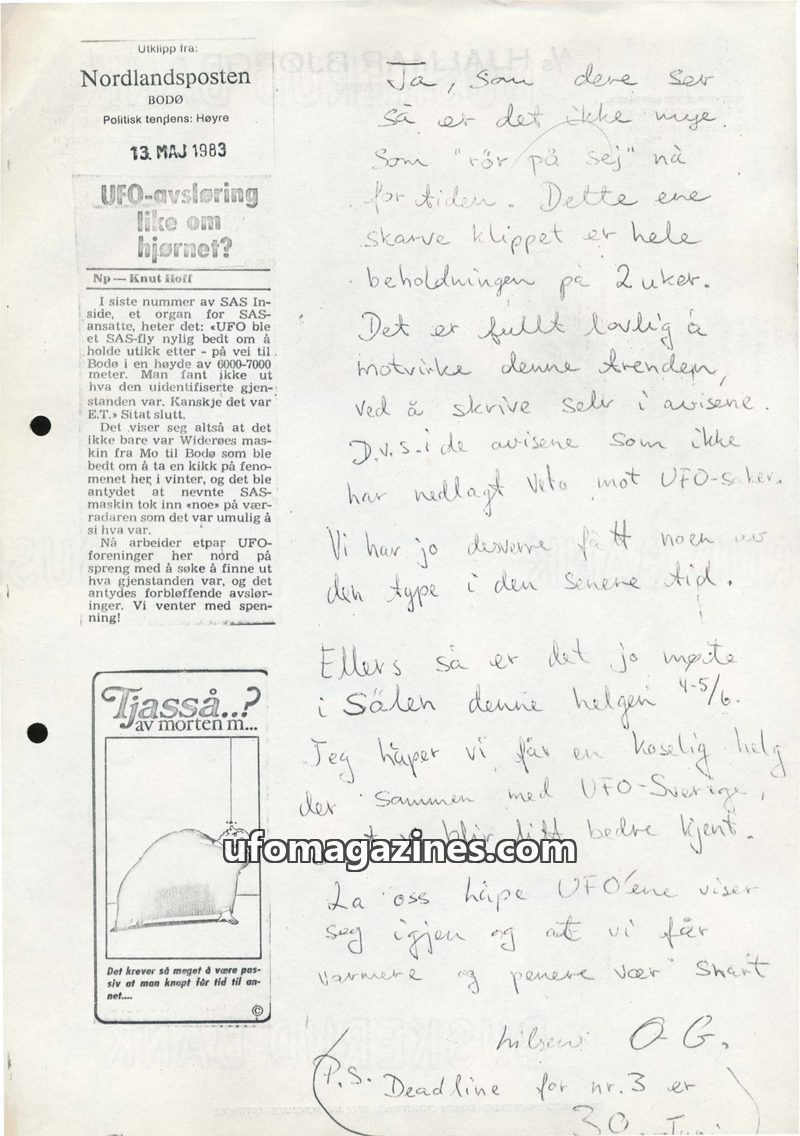 Utklipp fra:
Nordlandsposten
BODØ
Politisk tendens: Høyre
13. MAJ 1983
UFO-avsløring
like om
hjørnet?
Np — Knut Hoff
I siste nummer av SAS In-
side, et organ for SAS-
ansatte, heter det: «UFO ble
et SAS-fly nylig bedt om å
holde utikk etter - på vei til
Bodø i en høyde av 6000-7000
meter. Man fant ikke ut
hva den uidentifiserte gjen-
standen var. Kanskje det var
E.T.» Sitat slutt.
Det viser seg altså at det
ikke bare var Widerøes mas-
kin fra Mo til Bodø som ble
bedt om å ta en kikk på feno-
menet her i vinter, og det ble
antydet at nevnte SAS-
maskin tok inn «noe» på vær-
radaren som det var umulig å
si hva var.
Nå arbeider etpar UFO-
foreninger her nord på
spreng med å søke å finne ut
hva gjenstanden var, og det
antydes forbløffende avslør-
inger. Vi venter med spen-
ning!
Tjasså..?
av morten m...
Det krever så meget å være pas-
siv at man knapt får tid til an-
net....
©
Ja, som dere ser
så er det ikke mye
som "rör på sej" nå
for tiden. Dette ene
skarve klippet er hele
beholdningen på 2 uker.
Det er fullt lovlig å
motvirke denne trenden,
ved å skrive selv i avisene.
D.v.s. i de avisene som ikke
har nedlagt veto mot UFO-saker.
Vi har jo desverre fått noen av
den type i den senere tid.
Ellers så er det jo møte
i Sälen denne helgen 4-5/6.
Jeg håper vi får en koselig helg
der sammen med UFO-Sverige,
blir litt bedre kjent.
La oss håpe UFO'ene viser
seg igjen og at vi får
varmere og penere vær snart
hilsen O-G.
P.S. Deadline for nr. 3 er
30. Juni
ufomagazines.com